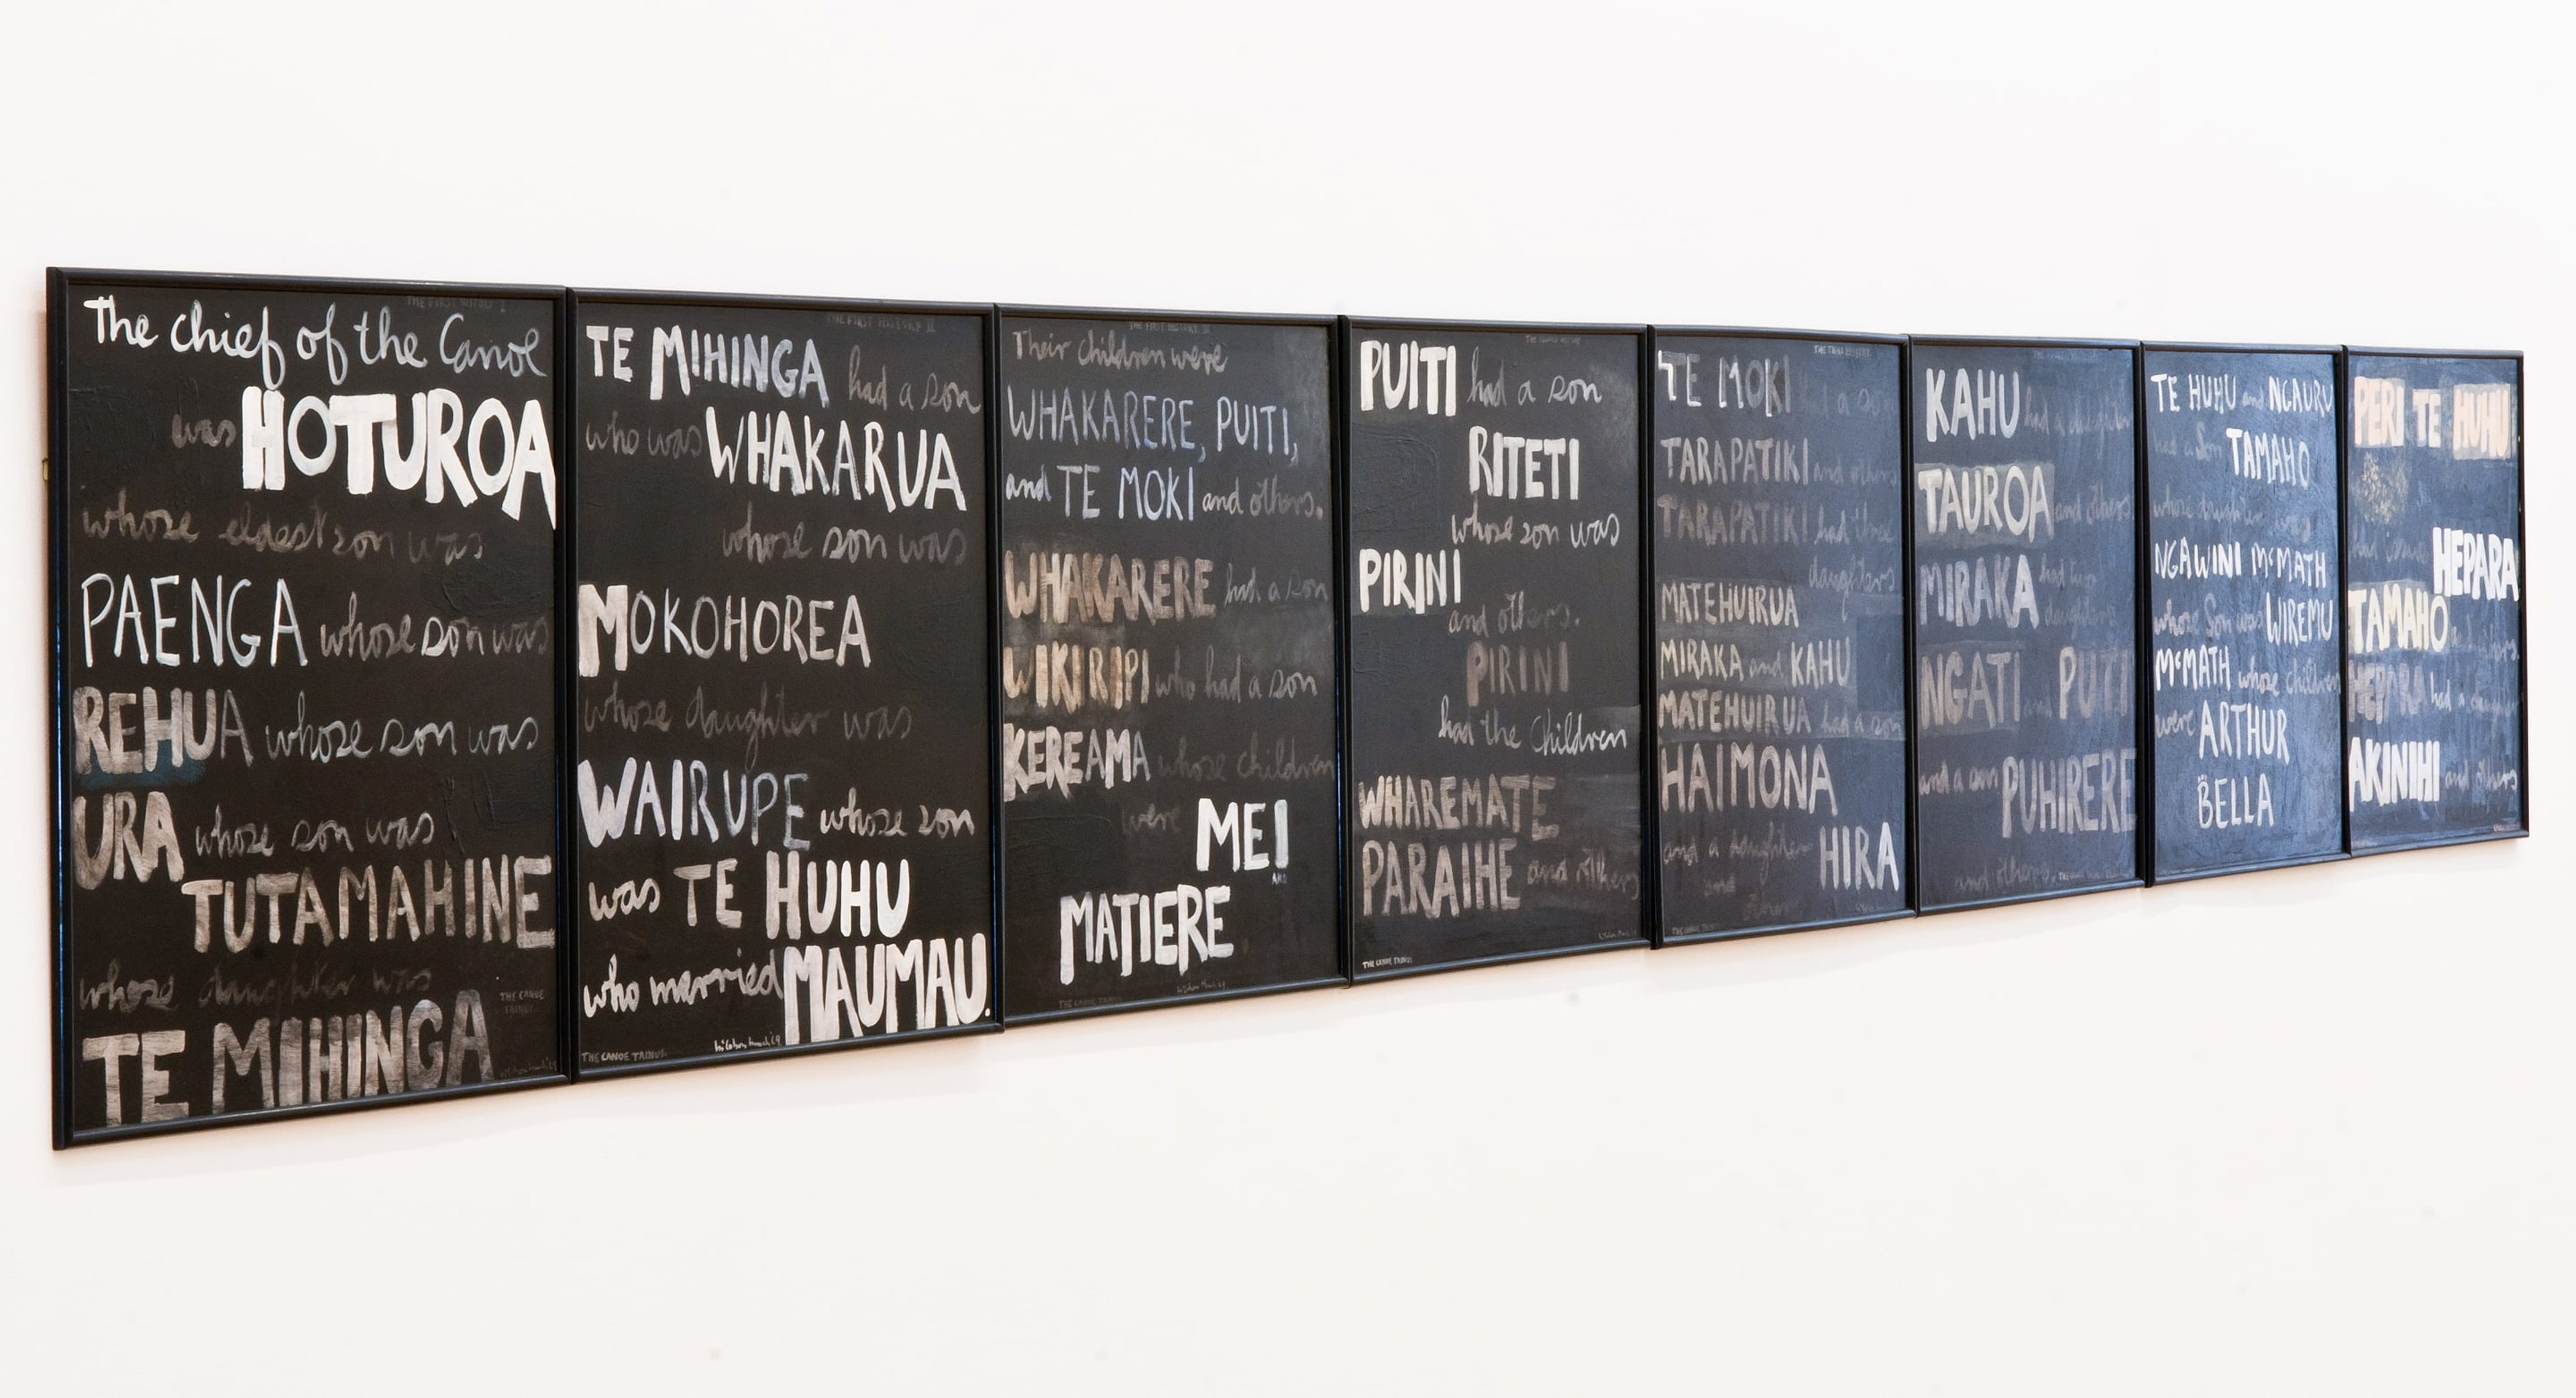 THE FIRST HISTORY I
The chief of the Canoe
was HOTUROA
whose eldest son was
PAENGA whose son was
REHUA whose son was
URA whose son was
TUTAMAHINE
whose daughter was
THE CANOE
TAINUI
TE MIHINGA
THE FIRST HISTORY II
TE MIHINGA had a son
who was WHAKARUA
whose son was
MOKOHOREA
whose daughter was
WAIRUPE whose son
was TE HUHU
who married MAUMAU.
THE CANOE TAINUI
THE FIRST HISTORY
Their children were
WHAKARERE, PUITI,
and TE MOKI and others.
WHAKARERE had a son
WIKIRIPI who had a son
KEREAMA whose children
were MEI
AND
MATIERE
THE CANOE TAINUI
PUITI had a son
RITETI
whose son was
PIRINI
and others.
PIRINI
had the Children
WHAREMATE
PARAIHE and others
THE CANOE TAINUI
TE MOKI had a son
TARAPATIKI and others
TARAPATIKI had three
daughters
MATEHUIRUA
MIRAKA and KAHU
MATEHUIRUA had a son
HAIMONA
and a daughter HIRA
and
THE CANOE TAINUI
KAHU had a daughter
TAUROA and others
MIRAKA had two
daughters
NGATI and PUTI
and a son PUHIRERE
and others.
TE HUHU and NGAURU
had a Son TAMAHO
whose daughter was
NGAWINI McMATH
whose Son was WIREMU
McMATH whose children
were ARTHUR
BELLA
PERI TE HUHU
had issue HEPARA
TAMAHO and others.
HEPARA had a daughter
AKINIHI and others